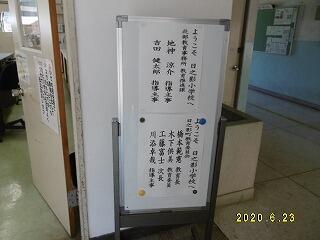 ようこそ 日之影小学校へ
北部教育事務所 教育推進課
地神 涼介 指導主事
吉田 健太郎 指導主事
ようこそ 日之影小学校へ
日之影町教育委員会
橋本範憲 教育長
木下保美 教育委員
工藤富士 次長
川添卓哉 指導主事
2020.6.23